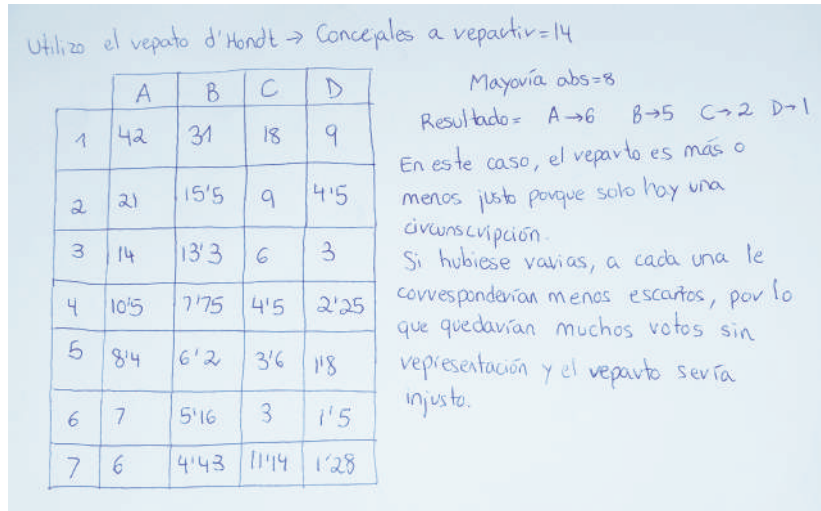 Utilizo el reparto d'Hondt → Concejales a repartir = 14
A B C D
1 42 31 18 9
2 21 15'5 9 4'5
3 14 13'3 6 3
4 10'5 7'75 4'5 2'25
5 8'4 6'2 3'6 1'8
6 7 5'16 3 1'5
7 6 4'43 11'14 1'28
Mayoría abs=8
Resultado= A→6 B→5 C→2 D→1
En este caso, el reparto es más o
menos justo porque solo hay una
circunscripción.
Si hubiese varias, a cada una le
corresponderían menos escaños, por lo
que quedarían muchos votos sin
representación y el reparto sería
injusto.